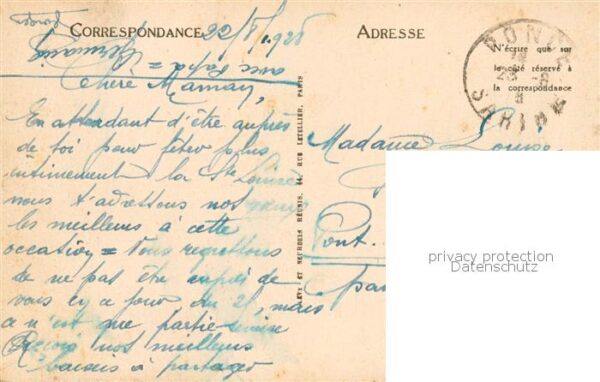 CORRESPONDANCE
22/8/1928
Germaine
avec Papa =
Chère Maman,
En attendant d'être auprès
de toi pour fêter plus
intimement la Ste Louise
nous t'adressons nos vœux
les meilleurs à cette
occasion = Nous regrettons
de ne pas être auprès de
vous ce jour du 25, mais
ce n'est que partie remise
Reçois nos meilleurs
baisers à partager
LÉVY ET NEURDEIN RÉUNIS, 44, RUE LETELLIER, PARIS
ADRESSE
N'écrire que sur
le côté réservé à
la correspondance
SARTHE
Madame Louise
Pont
par
privacy protection
Datenschutz